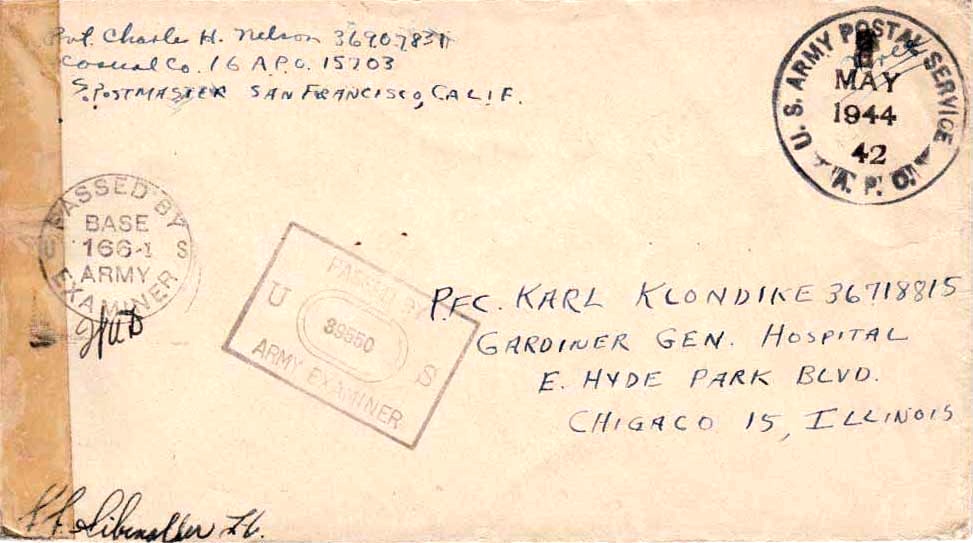 Pvt. Charles H. Nelson 36907831
Casual Co. 16 A.P.O. 15703
℅ POSTMASTER SAN FRANCISCO, CALIF.
U. S. ARMY POSTAL SERVICE
MAY
1944
42
A. P. O.
PASSED BY
BASE
1664
ARMY
EXAMINER
U S
PASSED BY
U 39550 S
ARMY EXAMINER
PFC. KARL KLONDIKE 36718815
GARDINER GEN. HOSPITAL
E. HYDE PARK BLVD.
CHIGACO 15, ILLINOIS